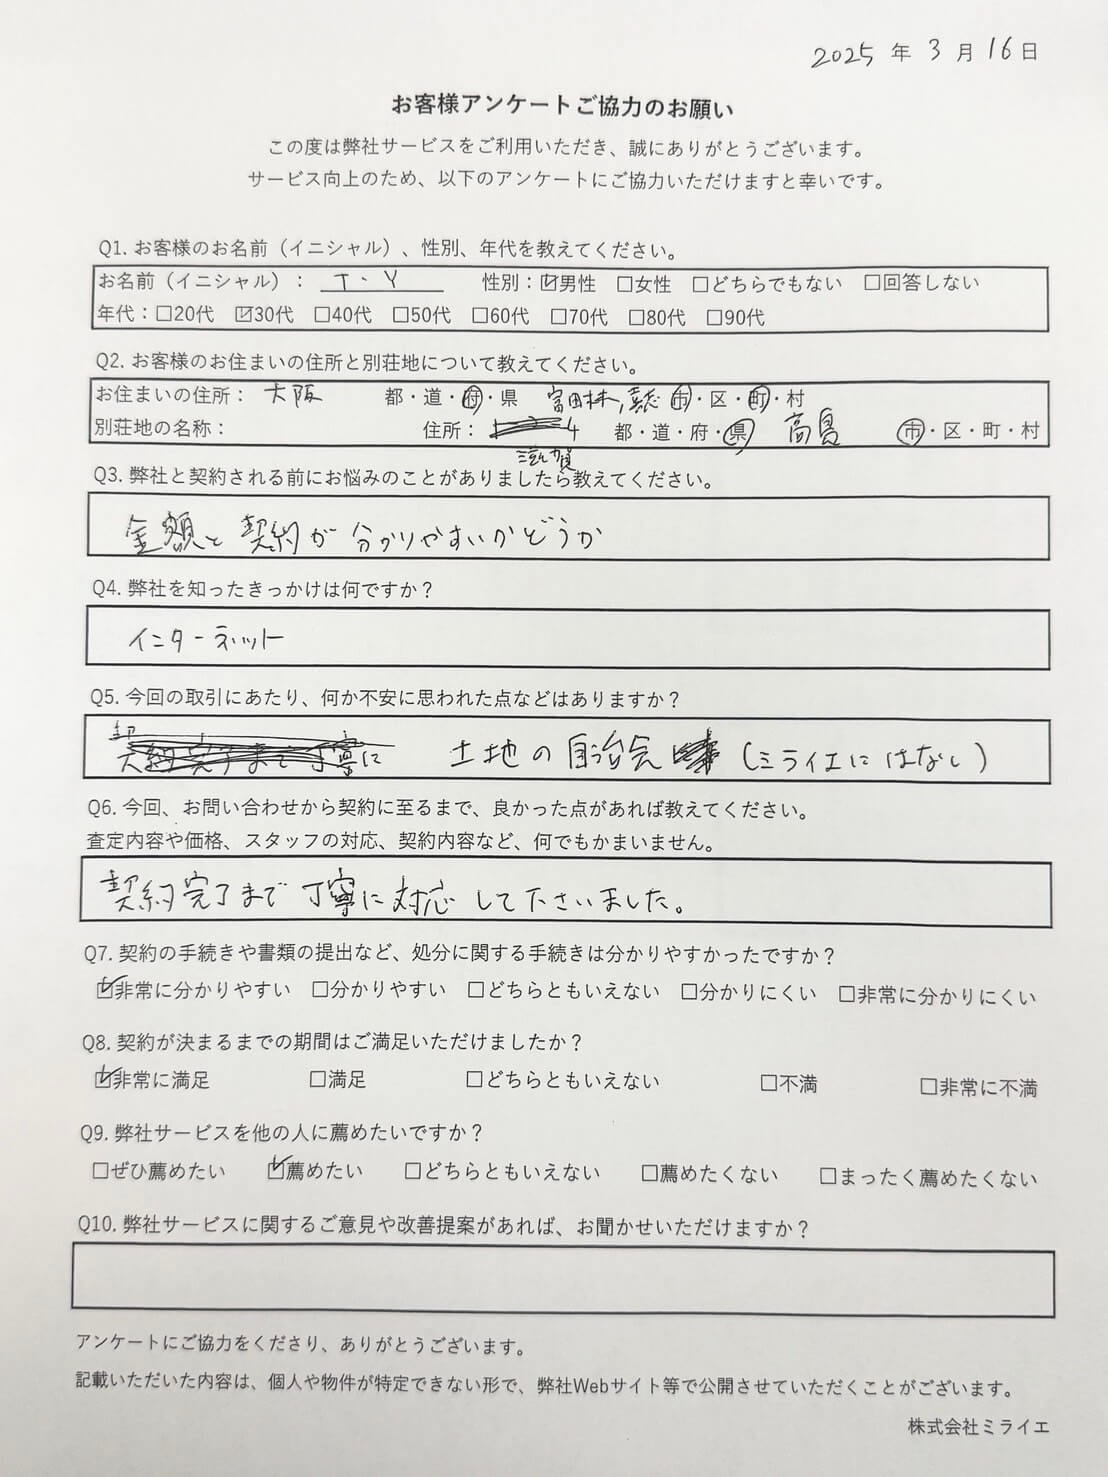 2025 年 3 月 16 日
お客様アンケートご協力のお願い
この度は弊社サービスをご利用いただき、誠にありがとうございます。
サービス向上のため、以下のアンケートにご協力いただけますと幸いです。
Q1. お客様のお名前（イニシャル）、性別、年代を教えてください。
お名前（イニシャル）： T・Y 性別：☑男性 □女性 □どちらでもない □回答しない
年代：□20代 ☑30代 □40代 □50代 □60代 □70代 □80代 □90代
Q2. お客様のお住まいの住所と別荘地について教えてください。
お住まいの住所： 大阪 都・道・府・県 富田林 市・区・町・村
別荘地の名称： 住所： 都・道・府・県 高島 市・区・町・村
滋賀
Q3. 弊社と契約される前にお悩みのことがありましたら教えてください。
金額と契約が分かりやすいかどうか
Q4. 弊社を知ったきっかけは何ですか？
インターネット
Q5. 今回の取引にあたり、何か不安に思われた点などはありますか？
土地の自治会 (ミライエにはなし)
Q6. 今回、お問い合わせから契約に至るまで、良かった点があれば教えてください。
査定内容や価格、スタッフの対応、契約内容など、何でもかまいません。
契約完了まで丁寧に対応して下さいました。
Q7. 契約の手続きや書類の提出など、処分に関する手続きは分かりやすかったですか？
☑非常に分かりやすい □分かりやすい □どちらともいえない □分かりにくい □非常に分かりにくい
Q8. 契約が決まるまでの期間はご満足いただけましたか？
☑非常に満足 □満足 □どちらともいえない □不満 □非常に不満
Q9. 弊社サービスを他の人に薦めたいですか？
□ぜひ薦めたい ☑薦めたい □どちらともいえない □薦めたくない □まったく薦めたくない
Q10. 弊社サービスに関するご意見や改善提案があれば、お聞かせいただけますか？
アンケートにご協力をくださり、ありがとうございます。
記載いただいた内容は、個人や物件が特定できない形で、弊社Webサイト等で公開させていただくことがございます。
株式会社ミライエ